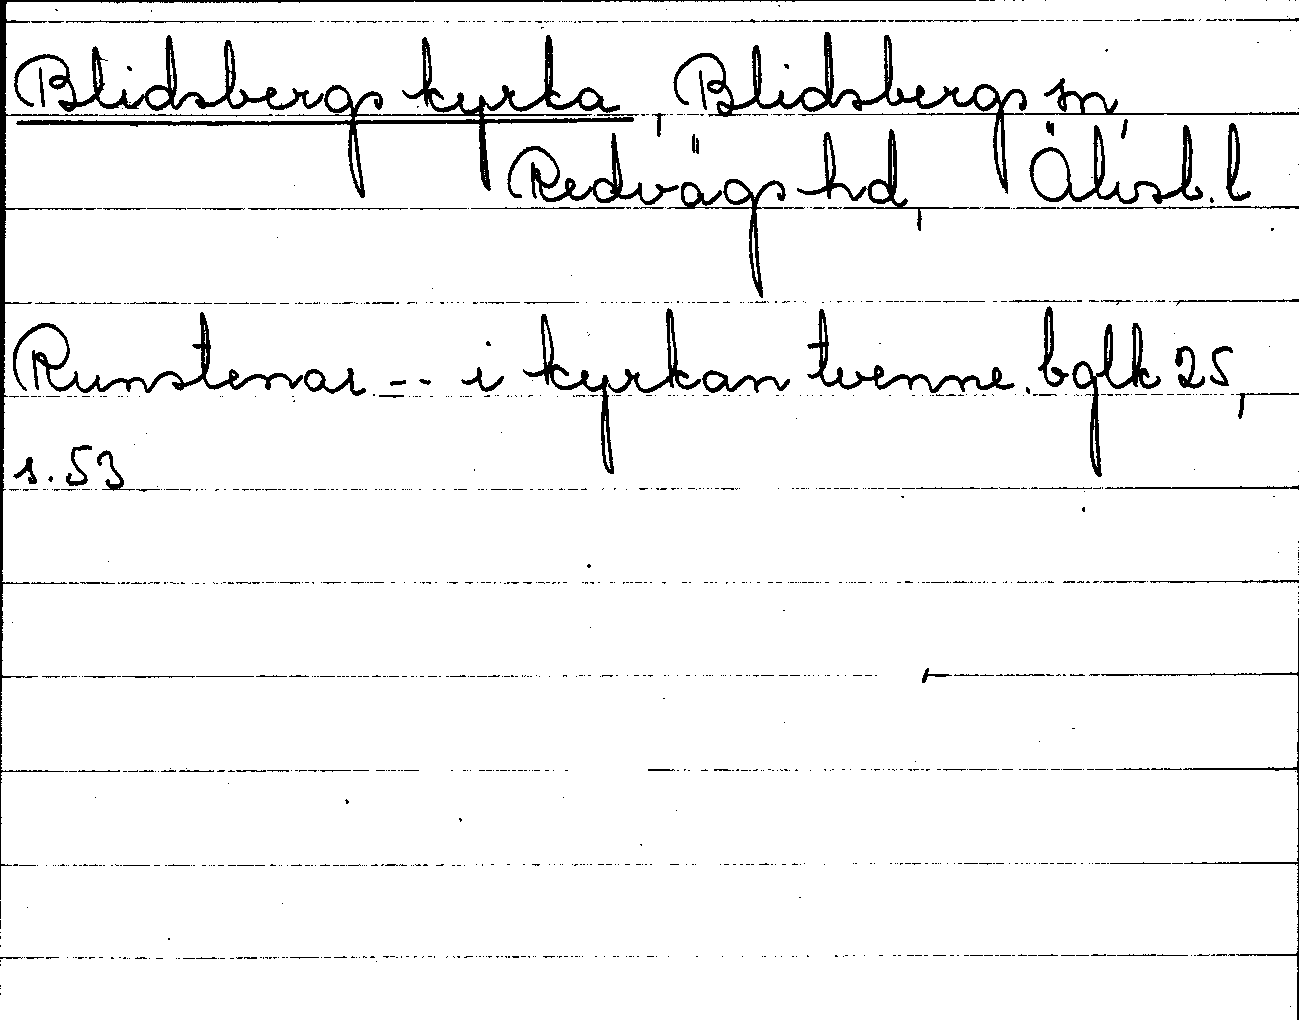 Blidsbergs kyrka, Blidsbergs sn,
Redvägs hd, Älvsb. l
Runstenar --- i kyrkan tvenne. bglk 25,
s. 53